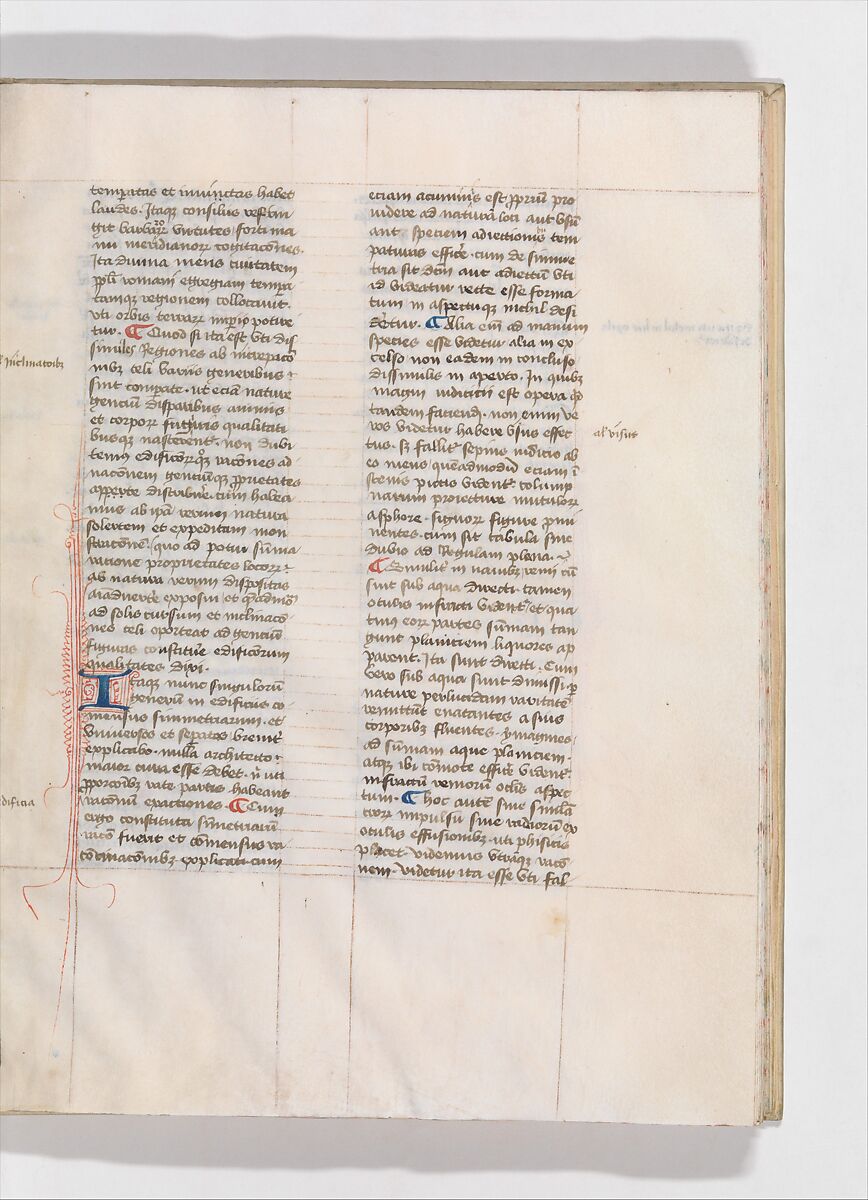 temperatas et inuictas habet
laudes. Itaque consiliis refrin
git barbarorum virtutes forti ma
nu meridianorum cogitacones.
Ita diuina mens ciuitatem
ppli romani egregiam tempera
tamque regionem collocauit.
vti orbis terrarum imperio potire
tur. ¶ Quod si ita est vti dis
similes Regiones ab
celi variis generibus
sint comparate. ut eciam nature
gencium disparibus animis
et corporum figuris qualitati
busque nascerentur. non dubi
temus edificiorum quoque racones ad
naconem genciumque proprietates
apperte distribuere cum habea
mus ab ipsa rerum natura
solertem et expeditam mon
stracone. quo ad potui summa
racione proprietates locorum
ab natura rerum dispositas
aiaduerte exposui et quemadmodum
ad solis cursum et inclinaco
nes celi oporteat ad gencium
figuras constitue edificiorum
qualitates dixi.
Itaque nunc singulorum
generum in edificiis co
mensus simmetriarum. et
vniuersos et separatos breuiter
explicabo. nulla architecto
maior cura esse debet. nisi uti
proporconibus rate partis habeant
raconum exactiones. ¶ Cum
ergo constituta simmetriarum
raco fuerit et comensus ra
cocinaconibus explicati cum
eciam acuminis est proprium pro
uidere ad naturam loci aut vsum
aut speciem adiectionibus tem
paturas efficere. cum de simme
tria sit dictum aut adiectum vti
id videatur recte esse forma
tum in aspectuque nichil desi
deretur. ¶ Alia enim ad manum
species esse videtur alia in ex
celso non eadem in concluso
dissimilis in aperto. In quibus
magni iudicii est opera quid
tandem faciendum. non enim ve
ros videtur habere vsus effec
tus. sed fallitur sepius iudicio ab
eo mens quemadmodum eciam in
scenis pictis videntur colump
narum proiecture mutulorum
asphore. signorum figure pmi
nentes. cum sit tabula sine
dubio ad Regulam plana.
¶ Similiter in nauibus remi cum
sint sub aqua directi tamen
oculis infracti videntur et qua
tinus eorum partes summam tan
gunt planiciem liquores ap
parent. Ita sunt directi. Cum
vero sub aqua sunt dimissi. per
nature perlucidam raritatem
remittunt enatantes a suis
corporibus fluentes. ymagines
ad summam aque planiciem.
atque ibi comote efficere videntur
infractum remorum oculis aspec
tum. ¶ Hoc autem siue simula
crorum impulsu siue radiorum ex
oculis effusionibus uti phisicis
placet videmus vtramque raco
nem. videtur ita esse vti fal
inclinatoibus
dificia
al' visus